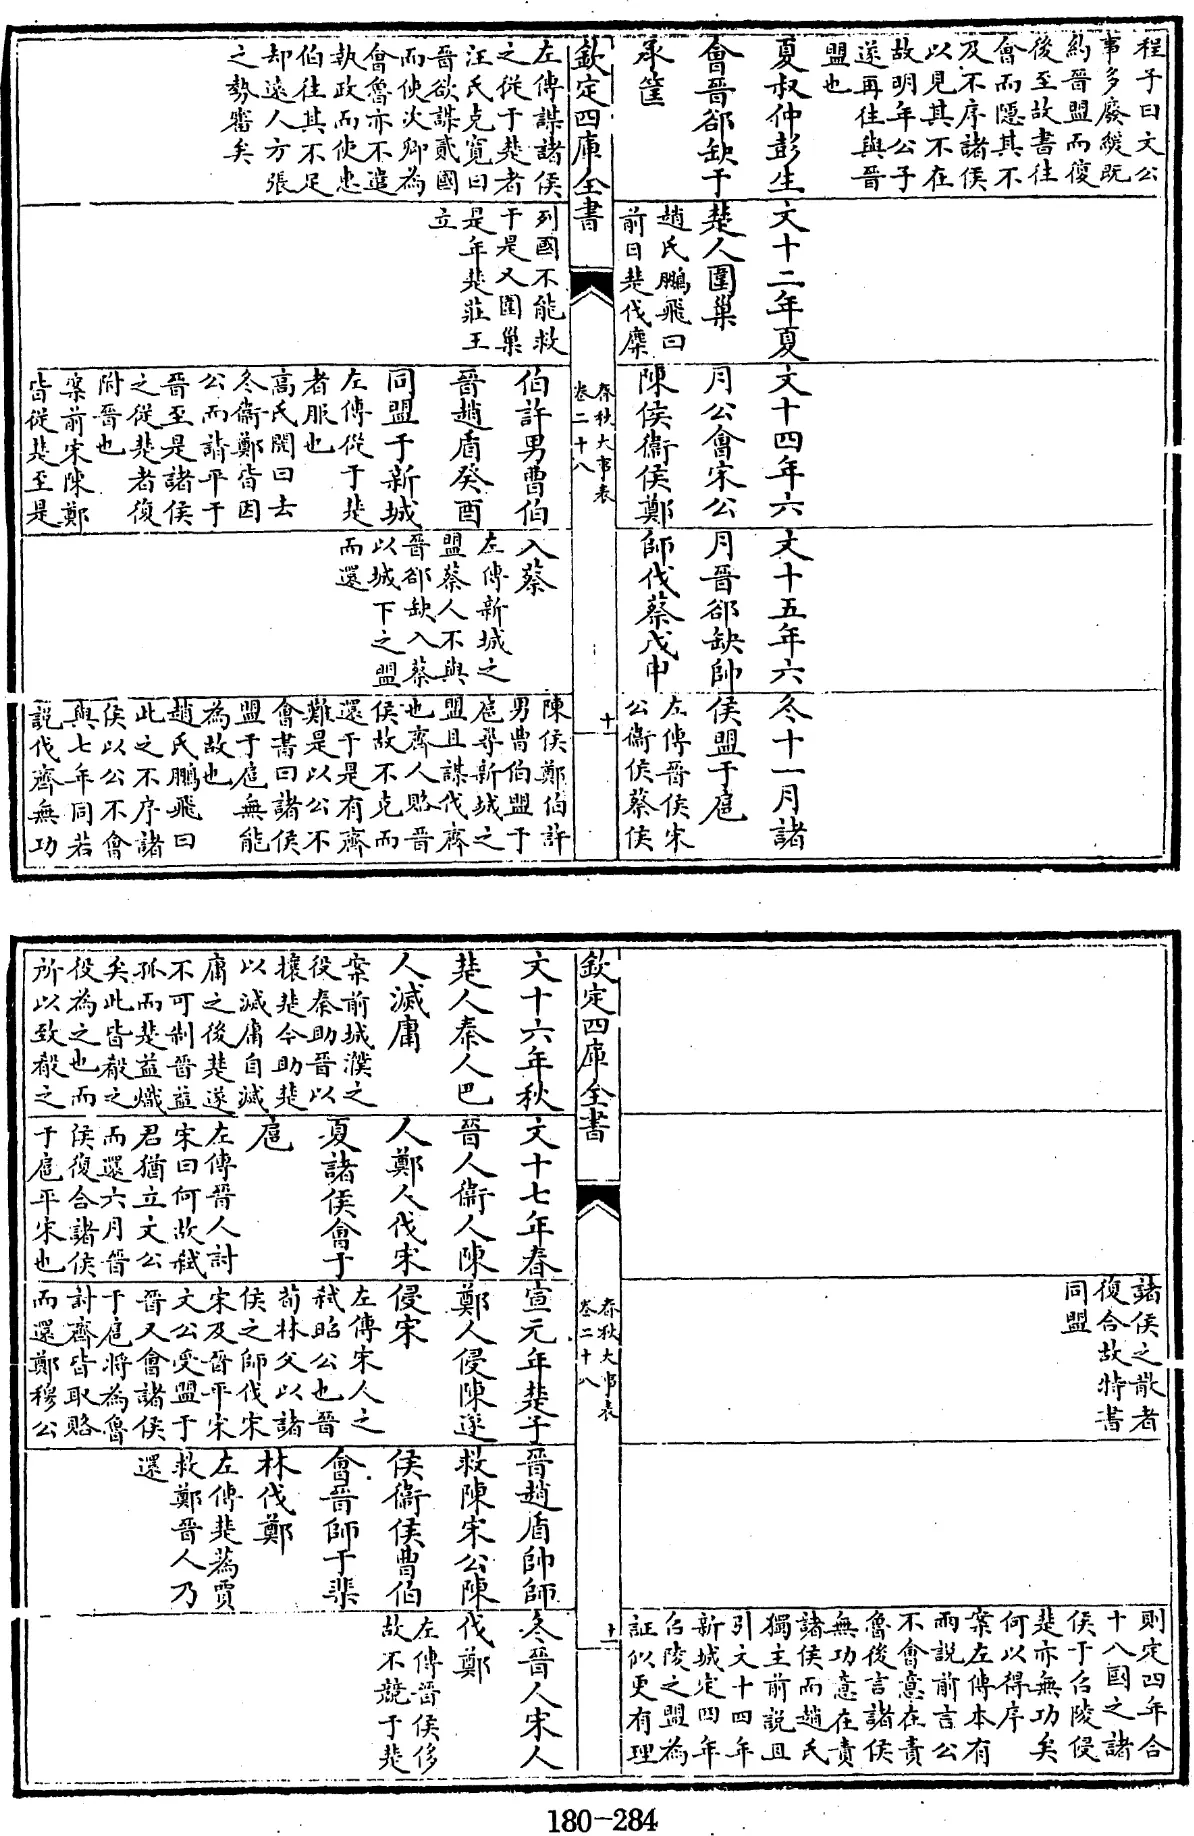 程子曰文公
事多廢緩既
約晉盟而復
後至故書往
會而隱其不
及不序諸侯
以見其不在
故明年公子
遂再往與晉
盟也
夏叔仲彭生
會晉郤缺于
承筐
文十二年夏
楚人圍巢
趙氏鵬飛曰
前日楚伐麋
文十四年六
月公會宋公
陳侯衞侯鄭
文十五年六
月晉郤缺帥
師伐蔡戊申
冬十一月諸
侯盟于扈
左傳晉侯宋
公衞侯蔡侯
欽定四庫全書
春秋大事表
卷二十八
十
左傳謀諸侯
之從于楚者
汪氏克寛曰
晉欲謀貳國
而使次卿為
會魯亦不遣
執政而使惠
伯往其不足
却遠人方張
之勢審矣
列國不能救
于是又圍巢
是年楚莊王
立
伯許男曹伯
晉趙盾癸酉
同盟于新城
左傳從于楚
者服也
高氏閌曰去
冬衞鄭皆因
公而請平于
晉至是諸侯
之從楚者復
附晉也
案前宋陳鄭
皆從楚至是
入蔡
左傳新城之
盟蔡人不與
晉郤缺入蔡
以城下之盟
而還
陳侯鄭伯許
男曹伯盟于
扈尋新城之
盟且謀伐齊
也齊人賂晉
侯故不克而
還于是有齊
難是以公不
會書曰諸侯
盟于扈無能
為故也
趙氏鵬飛曰
此之不序諸
侯以公不會
與七年同若
説伐齊無功
諸侯之散者
復合故特書
同盟
則定四年合
十八國之諸
侯于召陵侵
楚亦無功矣
何以得序
案左傳本有
兩説前言公
不會意在責
魯後言諸侯
無功意在責
諸侯而趙氏
獨主前説且
引文十四年
新城定四年
召陵之盟為
証似更有理
欽定四庫全書
春秋大事表
卷二十八
十一
文十六年秋
楚人秦人巴
人滅庸
案前城濮之
役秦助晉以
攘楚今助楚
以滅庸自滅
庸之後楚遂
不可制晉益
孤而楚益熾
矣此皆殽之
役為之也而
所以致殽之
文十七年春
晉人衞人陳
人鄭人伐宋
夏諸侯會于
扈
左傳晉人討
宋曰何故弑
君猶立文公
而還六月晉
侯復合諸侯
于扈平宋也
宣元年楚子
鄭人侵陳遂
侵宋
左傳宋人之
弑昭公也晉
荀林父以諸
侯之師伐宋
宋及晉平宋
文公受盟于
晉又會諸侯
于扈將為魯
討齊皆取賂
而還鄭穆公
晉趙盾帥師
救陳宋公陳
侯衞侯曹伯
會晉師于棐
林伐鄭
左傳楚蒍賈
救鄭晉人乃
還
冬晉人宋人
伐鄭
左傳晉侯侈
故不競于楚
180-284